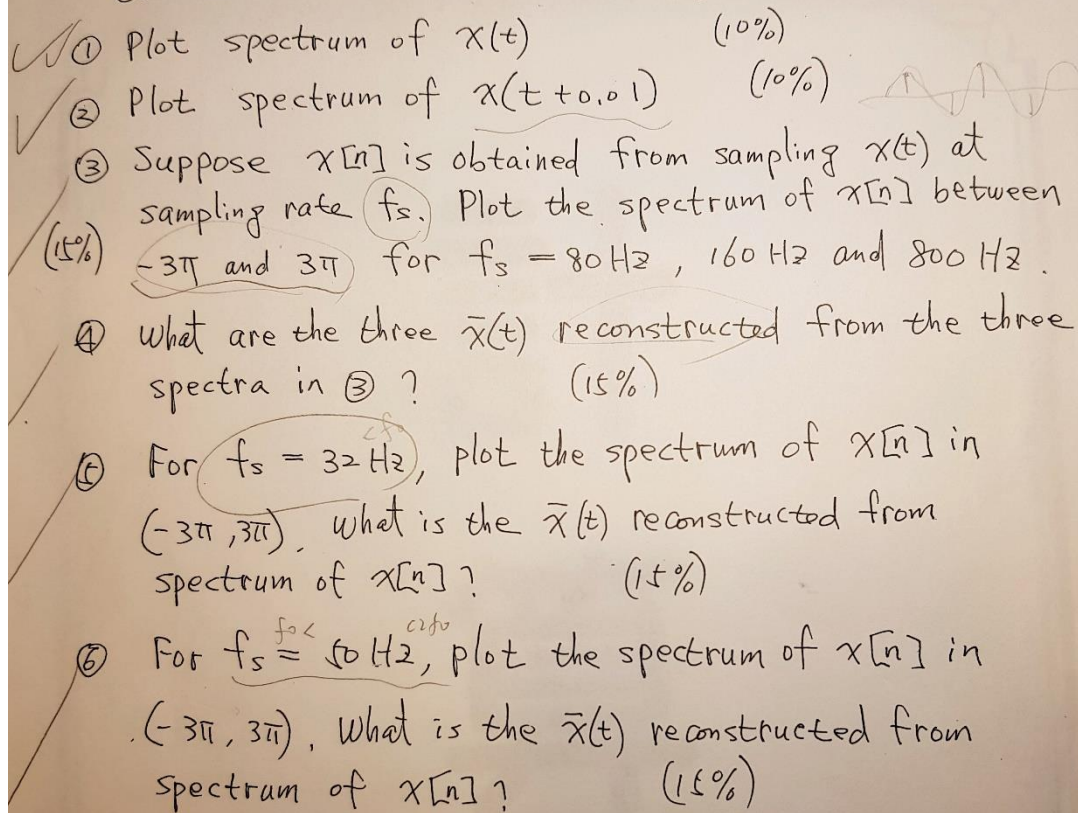 ① Plot spectrum of x(t) (10%)
② Plot spectrum of x(t+0.01) (10%)
③ Suppose x[n] is obtained from sampling x(t) at
sampling rate fs. Plot the spectrum of x[n] between
(15%) -3π and 3π for fs = 80 Hz, 160 Hz and 800 Hz.
④ What are the three x̄(t) reconstructed from the three
spectra in ③ ? (15%)
<f0
⑤ For fs = 32 Hz, plot the spectrum of x[n] in
(-3π, 3π). What is the x̄(t) reconstructed from
spectrum of x[n]? (15%)
f0< <2f0
⑥ For fs = 50 Hz, plot the spectrum of x[n] in
(-3π, 3π), What is the x̄(t) reconstructed from
spectrum of x[n]? (15%)